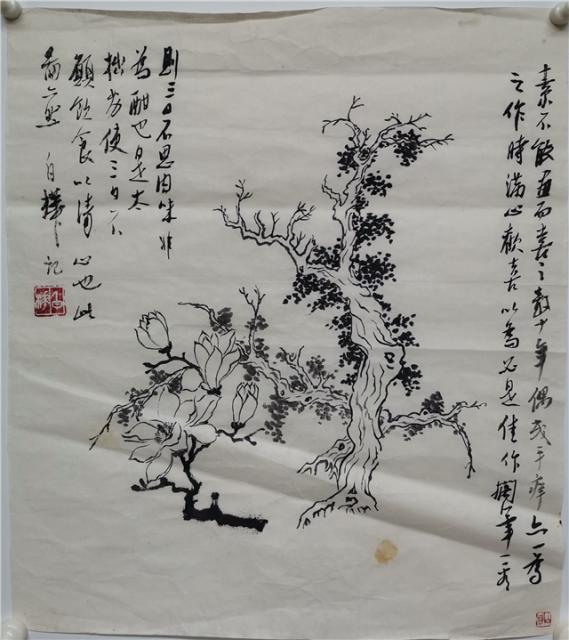 素不能画而喜之数十年偶或平庸亦一为
之作时满心欢喜以为必是佳作搁笔一看
则三日不思肉味非
为酣也是太
拙劣使三日不
顾饮食以清心也此
留念 自桦记